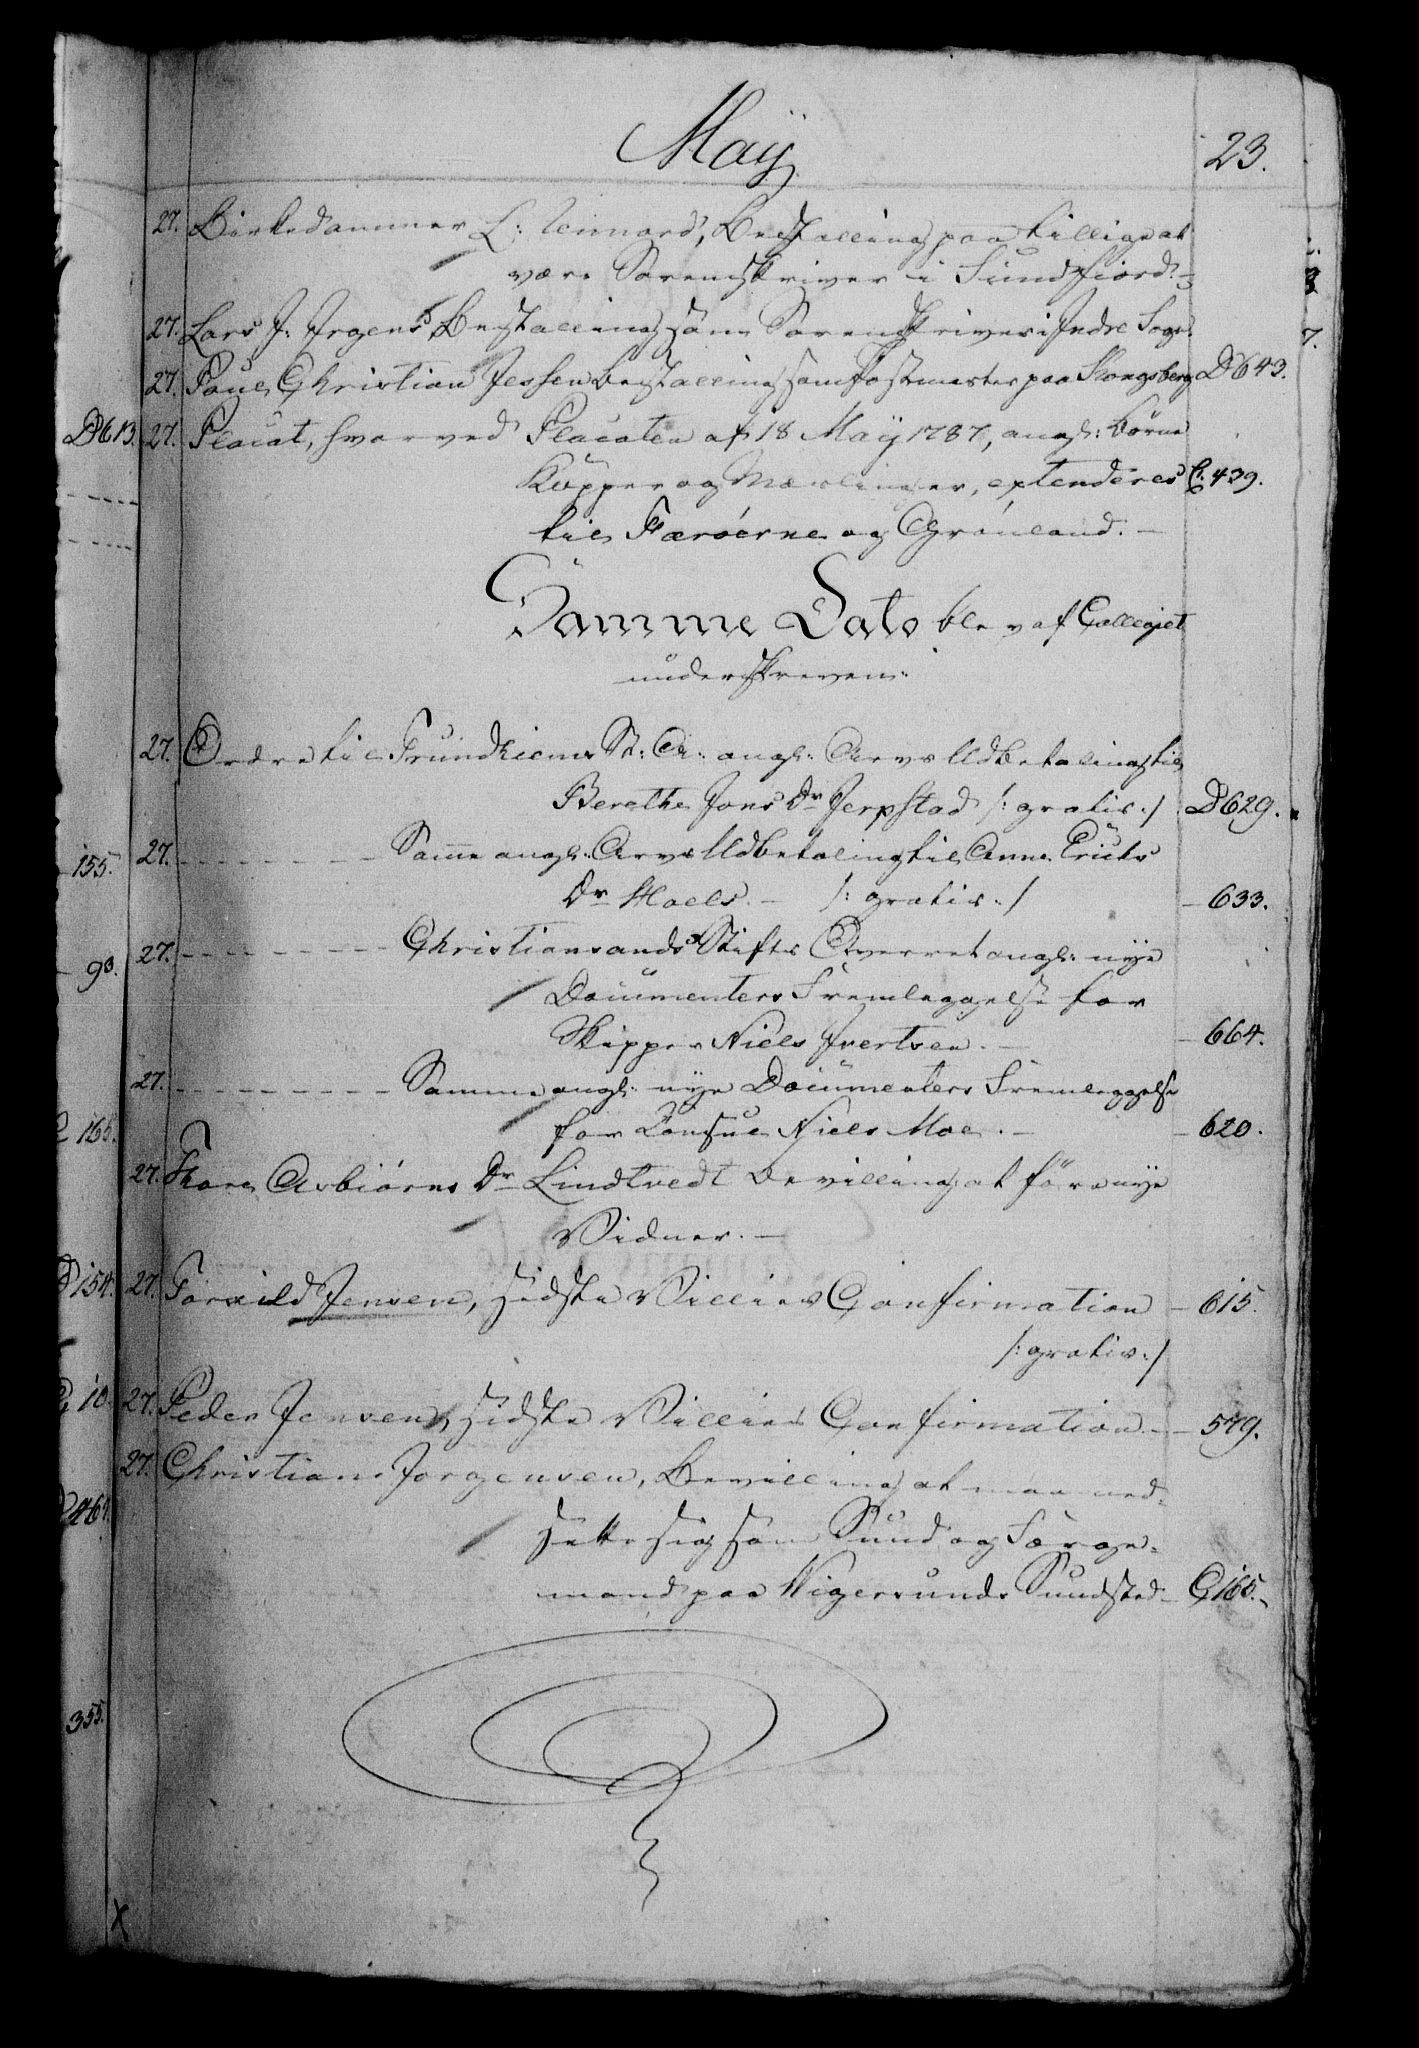 Maÿ
23.
27. Birkedommer L: Lemnord, Bestalling paa tillige at
være Sorenskriver i Sundfiord.
27. Lars J. Irgens Bestalling som Sorenskriver i Indre Sogn.
27. Poul Christian Jessen Bestalling som Postmester paa Kongsberg D 643.
27. Placat, hvorved Placaten af 18 Maÿ 1787, angl: Børne
Kopper og Mæslinger, extenderes C. 439.
til Færøerne og Grønland.
Samme Dato blev af Collegiet
underskreven:
27. Ordre til Trundhiems St: A: angl: Arvs Udbetaling til
Berethe Jons Dr Jerpstad /: gratis :/ D 629.
27. Samme angl: Arvs Udbetaling til Anne Erichs
Dr Moels. /: gratis :/ 633.
27. Christiansands Stifts Overret angl: nye
Documenters Fremleggelse for
Skipper Niels Ivertsen. 664.
27. Samme angl: nye Documenters Fremleggelse
for Consul Niels Moe. 620.
27. Thore Asbiørns Dr Lindtvedt Bevilling at føre nye
Vidner.
27. Torkild Jensen, sidste Villies Confirmation 615.
/: gratis :/
27. Peder Jensen, sidste Villies Confirmation 579.
27. Christian Jørgensen, Bevilling at maa ned-
sette sig som Sund og Færge-
mand paa Vigersunds Sundsted C 165.
D 613.
155.
90.
165.
D 154.
10.
464.
355.
X